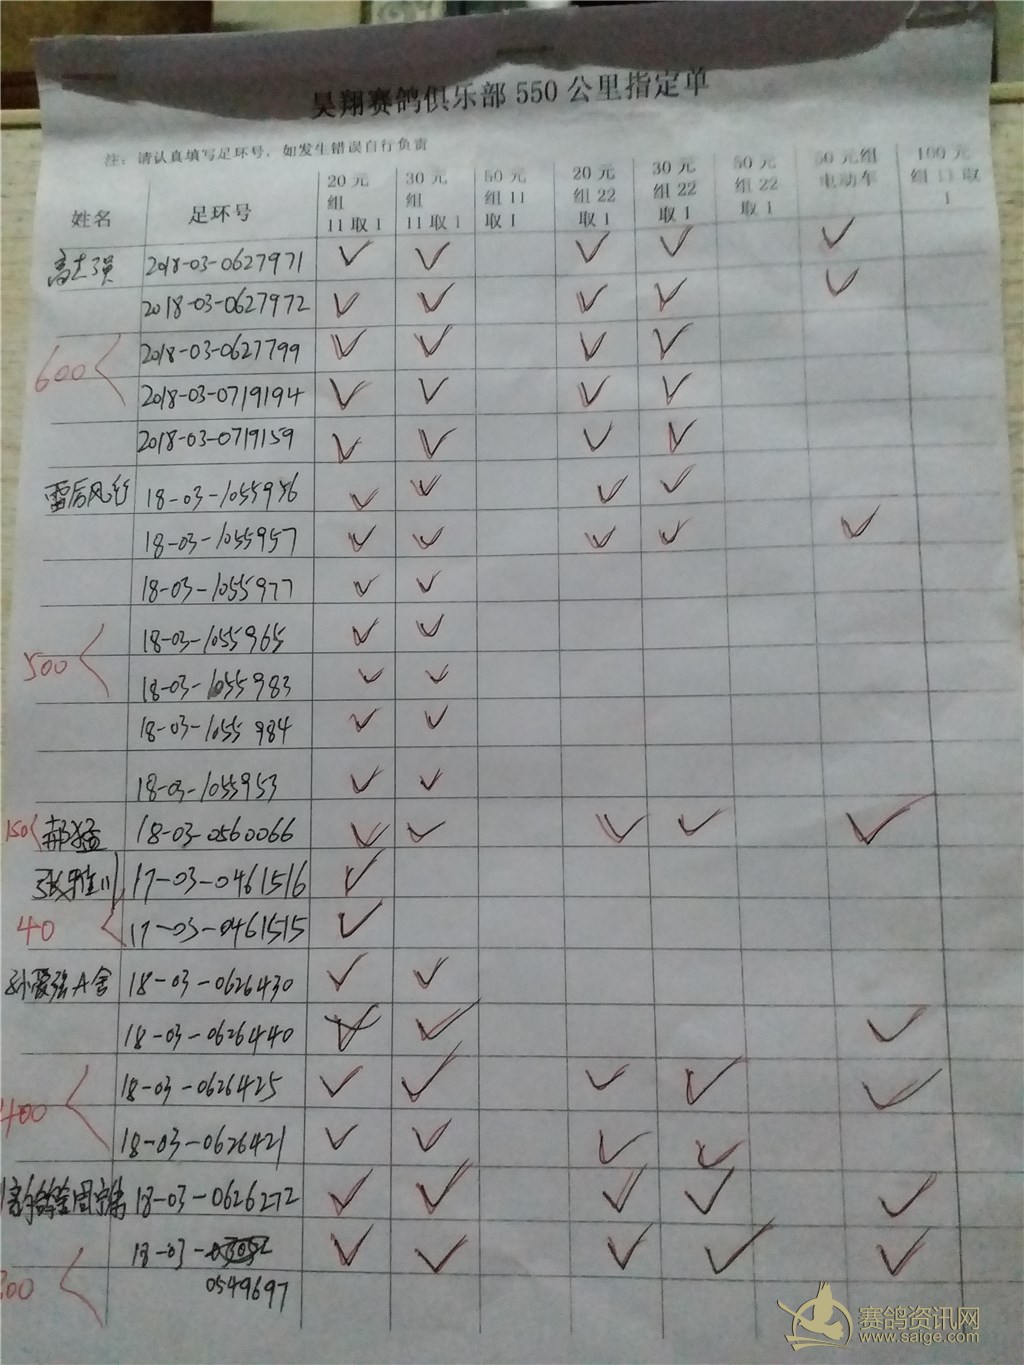 昊翔赛鸽俱乐部 550 公里指定单
注：请认真填写足环号，如发生错误自行负责
姓名 足环号 20 元组 11 取 1 30 元组 11 取 1 50 元组 11 取 1 20 元组 22 取 1 30 元组 22 取 1 50 元组 22 取 1 50 元组 电动车 100 元组 13 取 1
高志强 2018-03-0627971 ✓ ✓ ✓ ✓ ✓
2018-03-0627972 ✓ ✓ ✓ ✓ ✓
600 2018-03-0627799 ✓ ✓ ✓ ✓
2018-03-0719194 ✓ ✓ ✓ ✓
2018-03-0719159 ✓ ✓ ✓ ✓
18-03-1055956 ✓ ✓ ✓ ✓
18-03-1055957 ✓ ✓ ✓ ✓ ✓
18-03-1055977 ✓ ✓
18-03-1055965 ✓ ✓
500 18-03-1055983 ✓ ✓
18-03-1055984 ✓ ✓
18-03-1055953 ✓ ✓
150 郝猛 18-03-0560066 ✓ ✓ ✓ ✓ ✓
张雅川 17-03-0461516 ✓
40 17-03-0461515 ✓
孙爱强A舍 18-03-0626430 ✓ ✓
18-03-0626440 ✓ ✓ ✓
400 18-03-0626425 ✓ ✓ ✓ ✓ ✓
18-03-0626421 ✓ ✓ ✓ ✓
18-03-0626272 ✓ ✓ ✓ ✓ ✓
18-03- ✓ ✓ ✓ ✓ ✓
0549697
赛鸽资讯网
www.saige.com